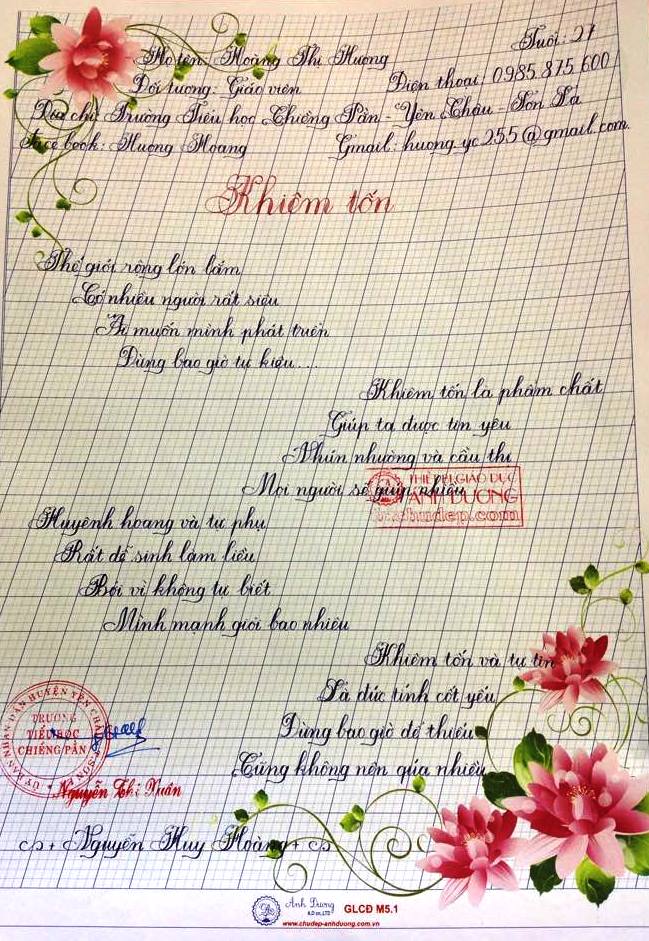 Họ tên: Hoàng Thị Hương Tuổi: 27
Đối tượng: Giáo viên Điện thoại: 0985.875.600
Địa chỉ: Trường Tiểu học Chiềng Pằn - Yên Châu - Sơn La
Facebook: Hương Hoang Gmail: huong.yc255@gmail.com
Khiêm tốn
Thế giới rộng lớn lắm
Có nhiều người rất siêu
Ai muốn mình phát triển
Đừng bao giờ tự kiêu...
Khiêm tốn là phẩm chất
Giúp ta được tin yêu
Nhún nhường và cầu thị
Mọi người sẽ giúp nhiều
THIẾT BỊ GIÁO DỤC
ÁNH DƯƠNG
chudep.com
Huyênh hoang và tự phụ
Rất dễ sinh làm liều
Bởi vì không tự biết
Mình mạnh giỏi bao nhiêu
Khiêm tốn và tự tin
Là đức tính cốt yếu
Đừng bao giờ để thiếu
Cũng không nên qúa nhiều
ỦY BAN NHÂN DÂN HUYỆN YÊN CHÂU SƠN LA
TRƯỜNG
TIỂU HỌC
CHIỀNG PẰN
Nguyễn Thị Xuân
Nguyễn Huy Hoàng
Ánh Dương GLCĐ M5.1
www.chudep-anhduong.com.vn